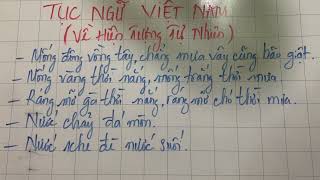 TỤC NGỮ VIỆT NAM
(Về Hiện Tượng Tự Nhiên)
- Mống đông vồng tây, chẳng mưa dây cũng bão giật.
- Mống vàng thì nắng, mống trắng thì mưa
- Ráng mỡ gà thì nắng, ráng mỡ chó thì mưa.
- Nước chảy đá mòn.
- Nước sông đè nước suối.